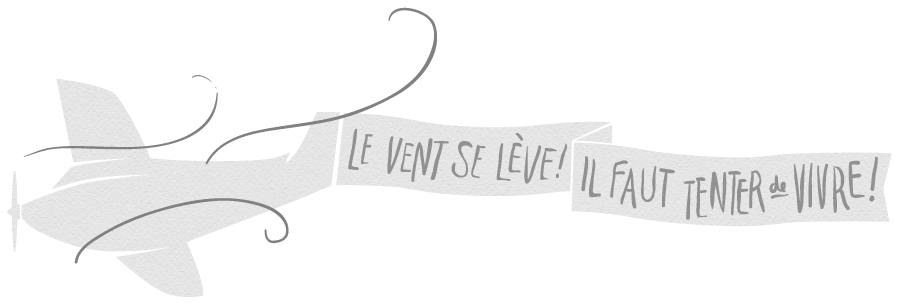 LE VENT SE LÈVE!
IL FAUT TENTER de VIVRE!